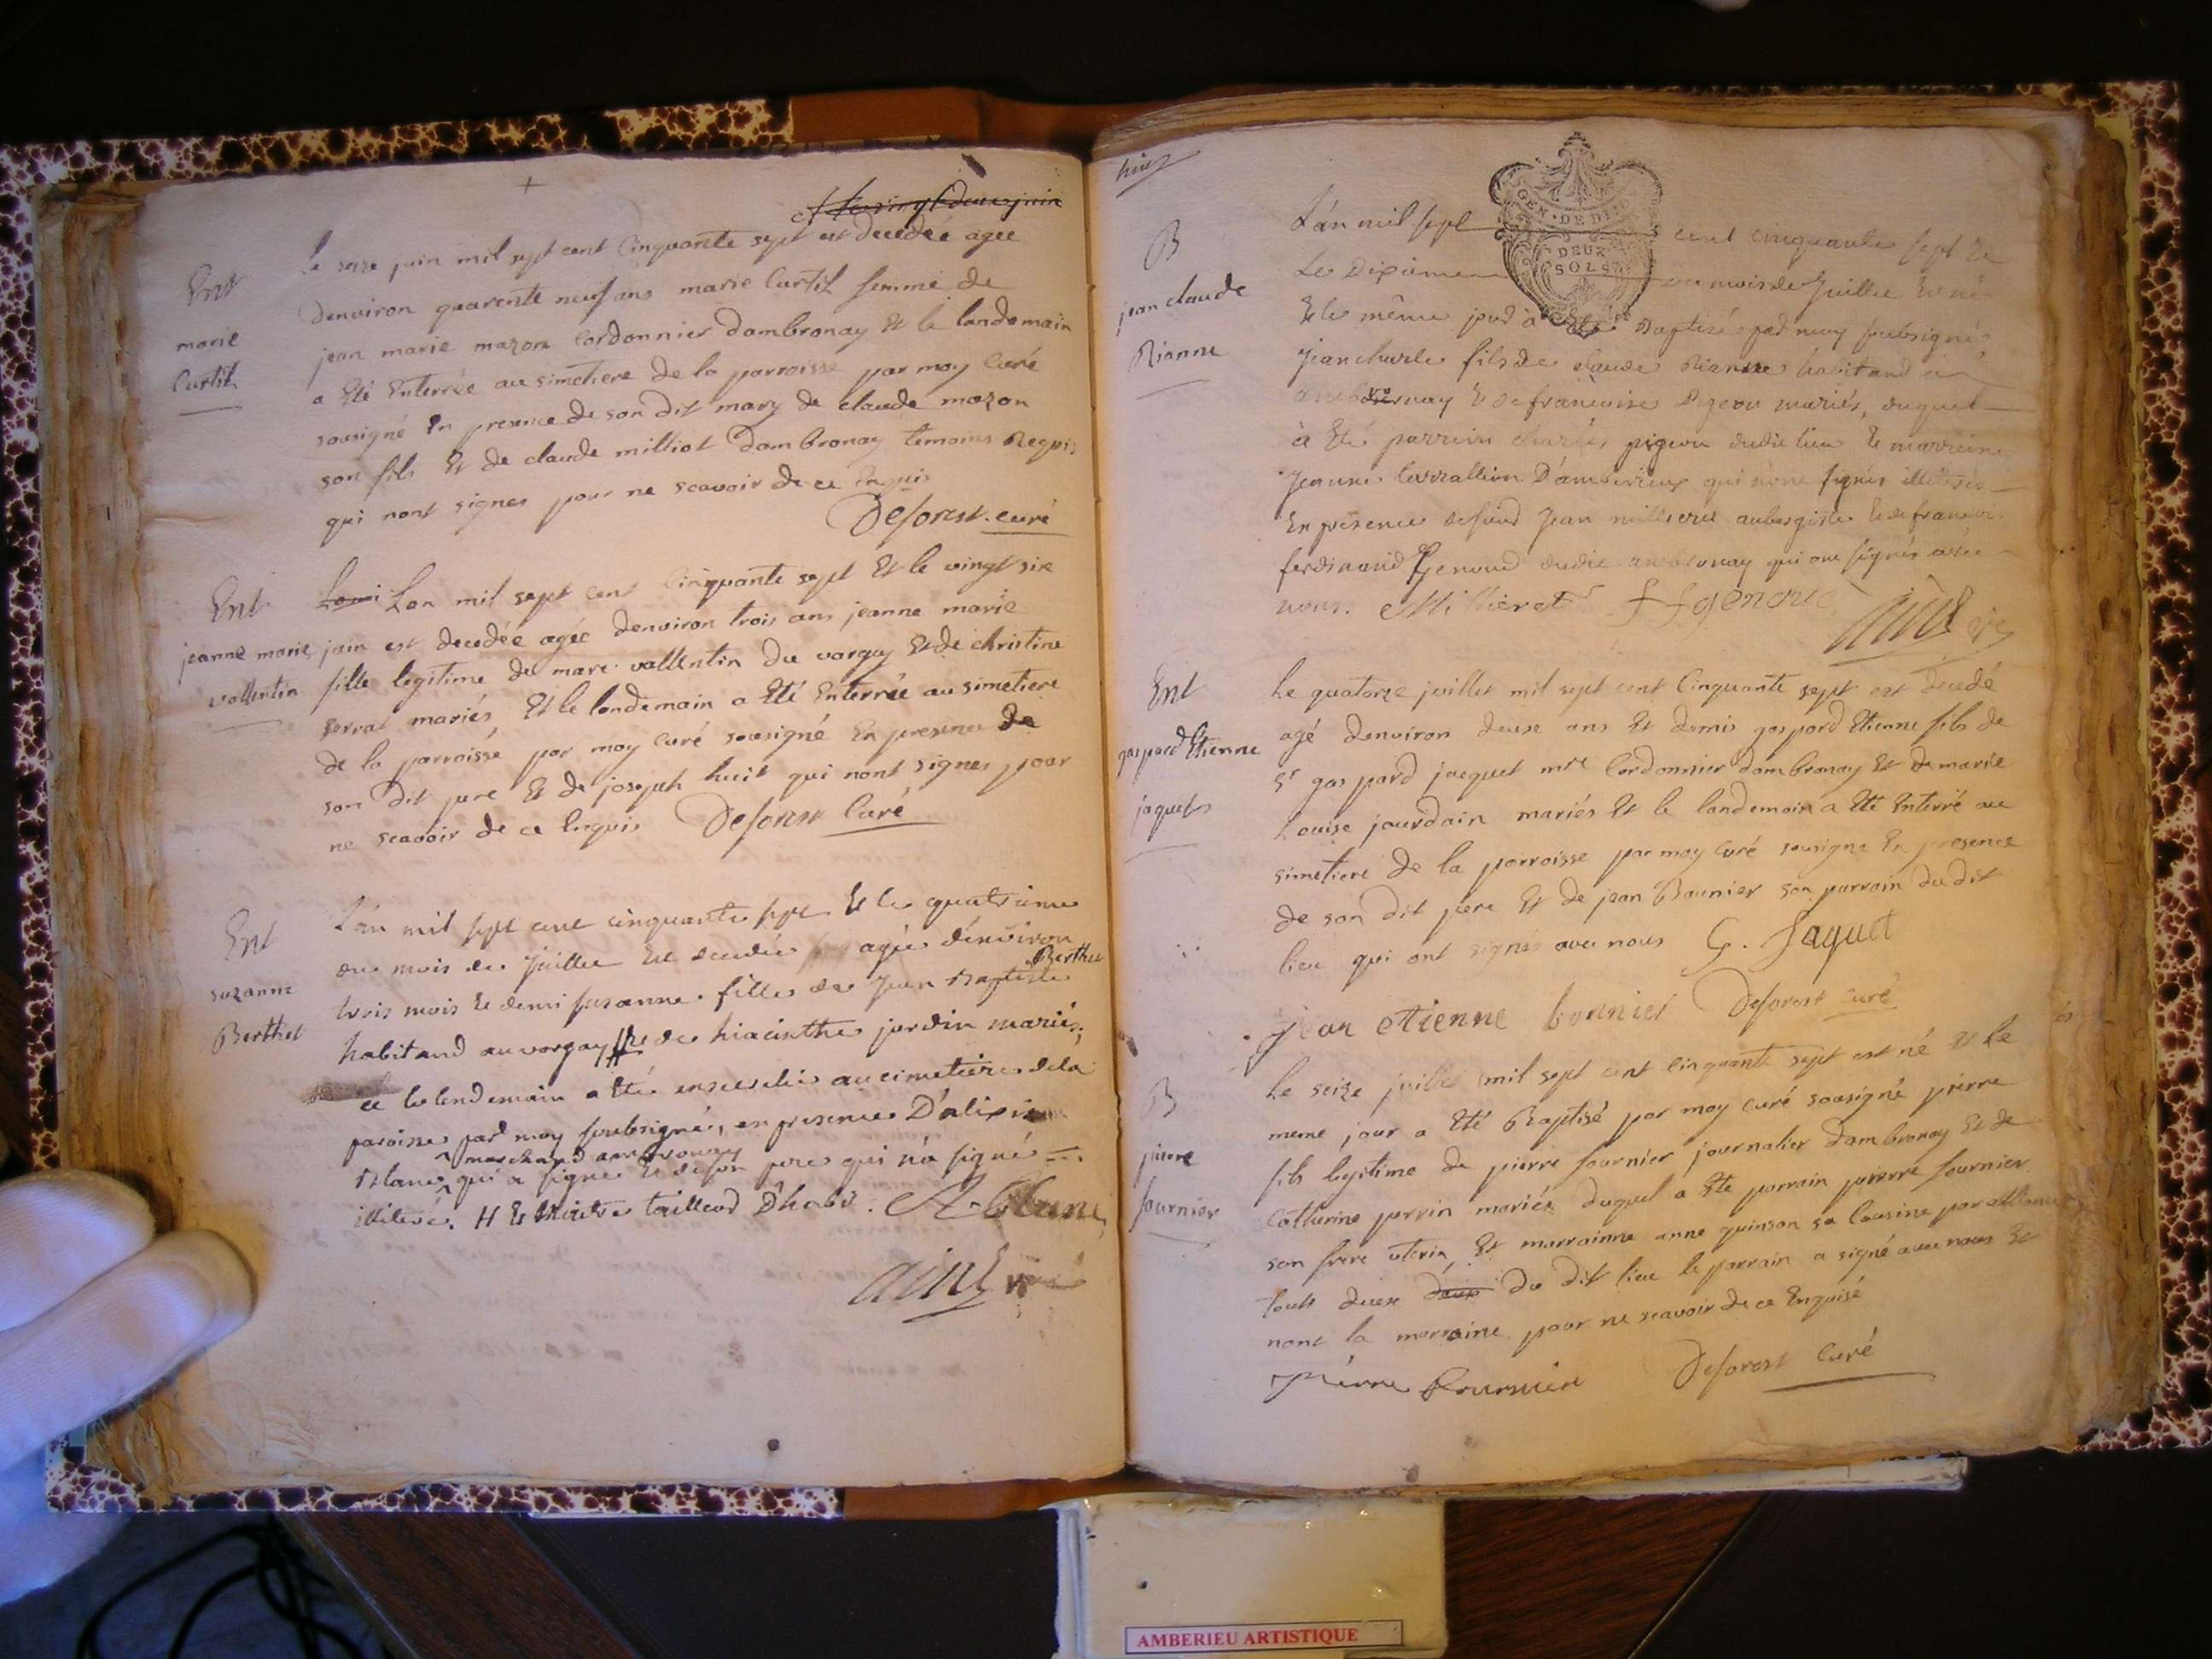 Ent
marie
Curtil
le seze juin mil sept cent Cinquante sept est decedée agée
denviron quarente neuf ans marie Curtil femme de
jean marie mazon Cordonnier dambronay Et le landemain
a Eté Enterrée au simetiere de la parroisse par moy Curé
sousigné En presence de son dit mary de claude mazon
son fils Et de claude milliot dambronay temoins Requis
qui nont signes pour ne scavoir de ce Enquis
Deforest. curé
Ent
jeanne marie
vallentin
Lan mil sept cent Cinquante sept Et le vingt sire
juin est decedée agée denviron trois ans jeanne marie
fille legitime de marc vallentin du vorgey Et de christine
serrat mariés Et le landemain a Eté Enterrée au simetiere
de la parroisse par moy Curé sousigné En presence de
son dit pere Et de joseph huit qui nont signes pour
ne scavoir de ce Enquis Deforest Curé
Ent
suzanne
Berthet
L'án mil sept cent cinquante sept Et le quatrieme
du mois de Juillet est decedée agée d'environ
trois mois et demi susanne fille de Jean Baptiste Berthet
habitand au vorgay # et de hiacinthe jardin mariés,
et le lendemain a été ensevelie au cimetiere de la
paroisse par moy soubsigné, en presence D'alixis
Blanc ^ marchand ambronay qui a signé et de son pere qui n'á signé
illiteré. # et maitre tailleur D'habit. A. Blanc
aimé
huit
B
jean claude
Rianne
GEN · DE DI
DEUX
SOLS
L'án mil sept cent cinquante sept et
Le Dixieme du mois de Juillet est né
Et le même jour à été Baptisé par moy soubsigné
Jean charle fils de claude Rianne habitand à
ambournay & de françoise Pigeon mariés, duquel
à été parrein charles pigeon dudit lieu & marreine
Jeanne Carrallion D'amberieux qui n'ont signés illiterés
En présence de sieur Jean millieret aubergiste & de françois
ferdinand Genoud dudit ambronay qui ont signés avec
nous. Millieret ffgenoud
Ent
gaspard Etienne
jaquet
Le quatorze juillet mil sept cent Cinquante sept est decedé
agé denviron deuse ans Et demis gaspard Etienne fils de
Sr gaspard jacquet mre Cordonnier dambronay Et de marie
Louise jourdain mariés Et le landemain a Eté Enterré au
simetiere de la parroisse par moy Curé sousigne En presence
de son dit pere Et de jean Baunier son parrain du dit
lieu qui ont signés avec nous G. Jaquet
Jean etienne bonnier Deforest curé
B
pierre
fournier
Le seize juillet mil sept cent Cinquante sept est né et le
meme jour a Eté Baptisé par moy curé sousigné pierre
fils legitime de pierre fournier journalier dambronay Et de
Catherine perrin mariés duquel a Eté parrain pierre fournier
son frere uterin Et marrainne anne quinson sa Cousine par alliance
touts deux du dit lieu le parrain a signé avec nous Et
nont la marraine pour ne scavoir de ce Enquise
Pierre Fournier Deforest Curé
AMBERIEU ARTISTIQUE